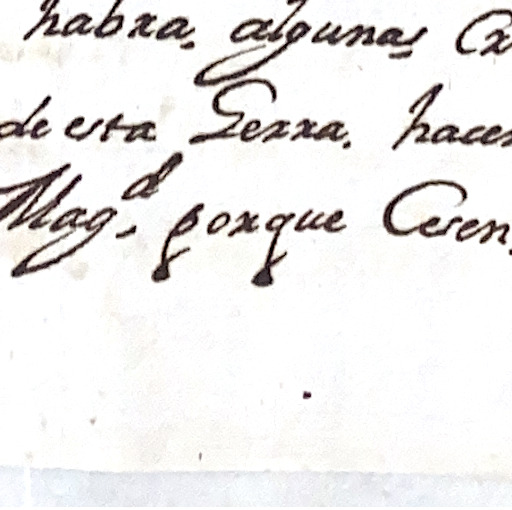 habra algunas
de esta Gerra. hacer
Mag.d porque Cesen